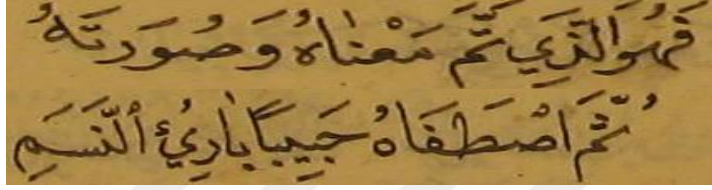 فَهُوَ الَّذِي تَّمَ مَعْنَاهُ وَصُوَرَتَهُ
ثُمَّ اصْطَفَاهُ حَبِيبًا بَارِئُ النَّسَمِ